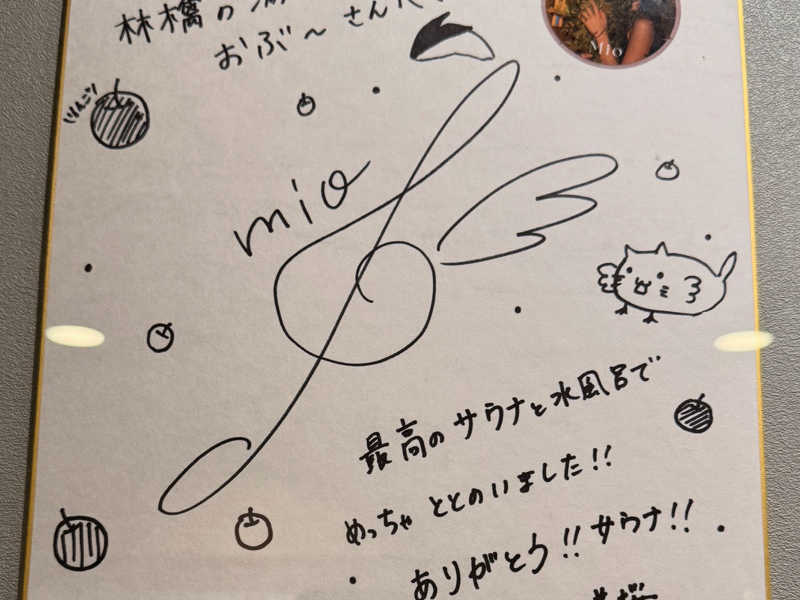 林檎の湯
おぶ〜さんへ
MIO
りんごり
mio
最高のサウナと水風呂で
めっちゃ ととのいました!!
ありがとう!! サウナ!!